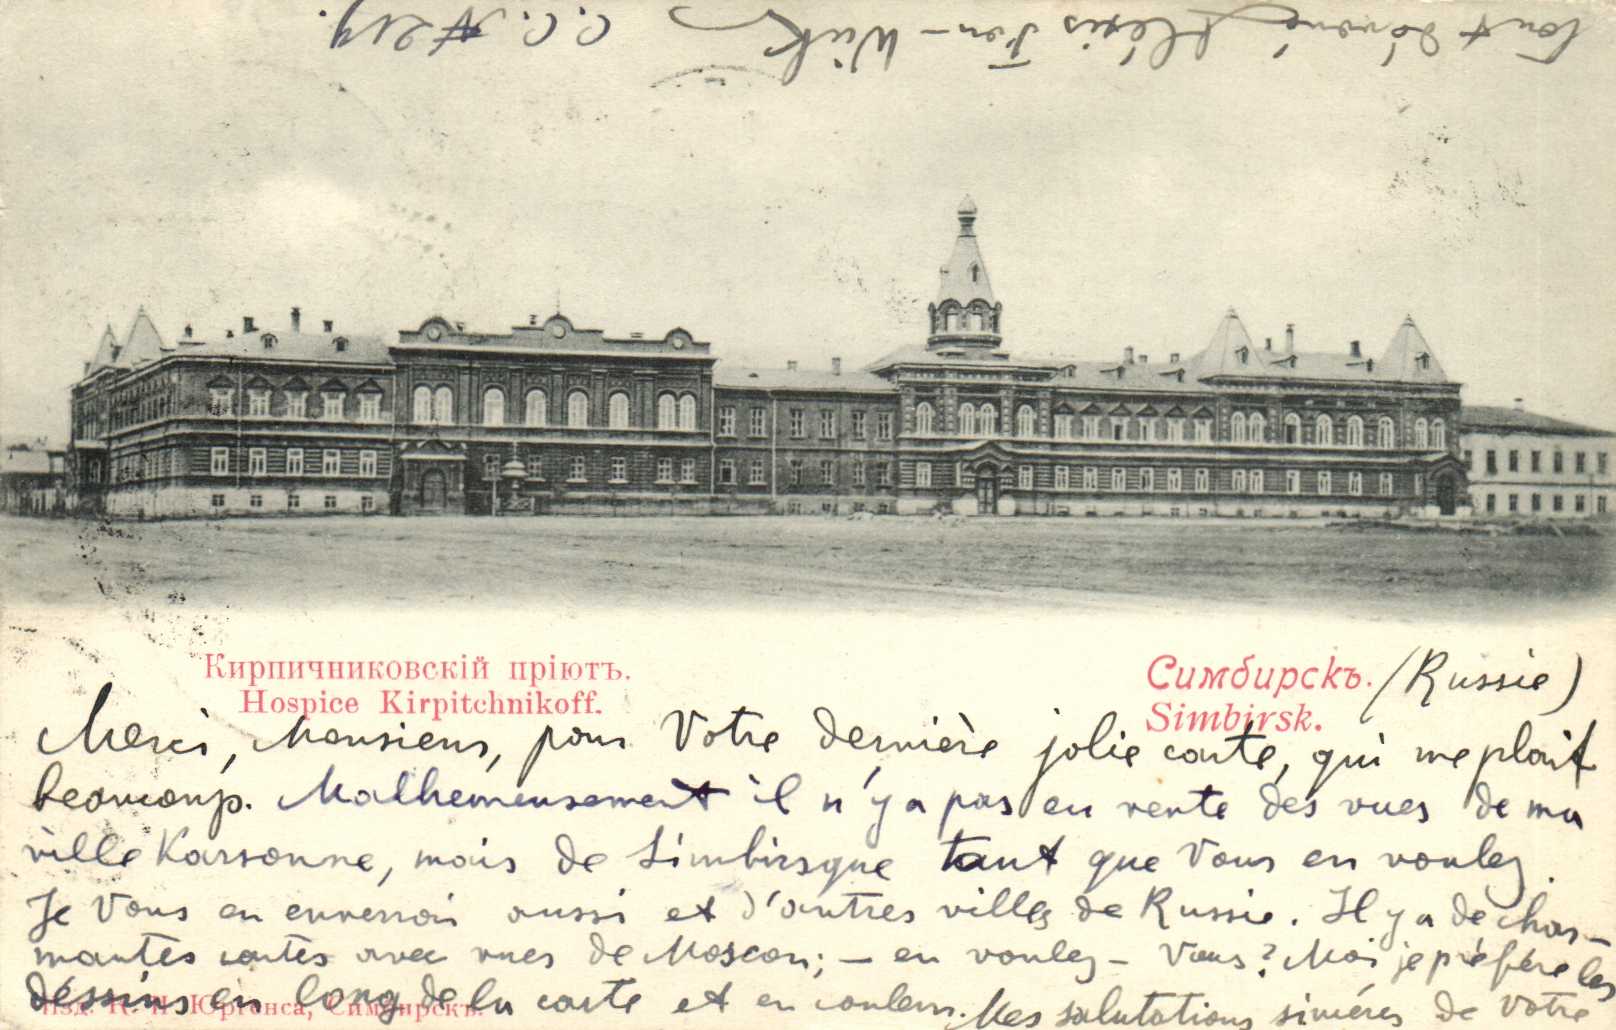 Кирпичниковскій пріютъ.
Hospice Kirpitchnikoff.
Симбирскъ. (Russie)
Simbirsk.
Merci, Monsieur, pour Votre dernière jolie carte, qui me plait
beaucoup. Malheureusement il n'y a pas en vente des vues de ma
ville Karsoune, mais de Simbirsque tant que Vous en voulez.
Je Vous en enverrai aussi et d'autres villes de Russie. Il y a de char-
mantes cartes avec vues de Moscou; – en voulez – Vous? Moi je préfère les
dessins en long de la carte et en couleur. Mes salutations sincéres de Votre
tout dévoué Alexis
C. C. № 219.
Изд. Юргенса, Симбирскъ.